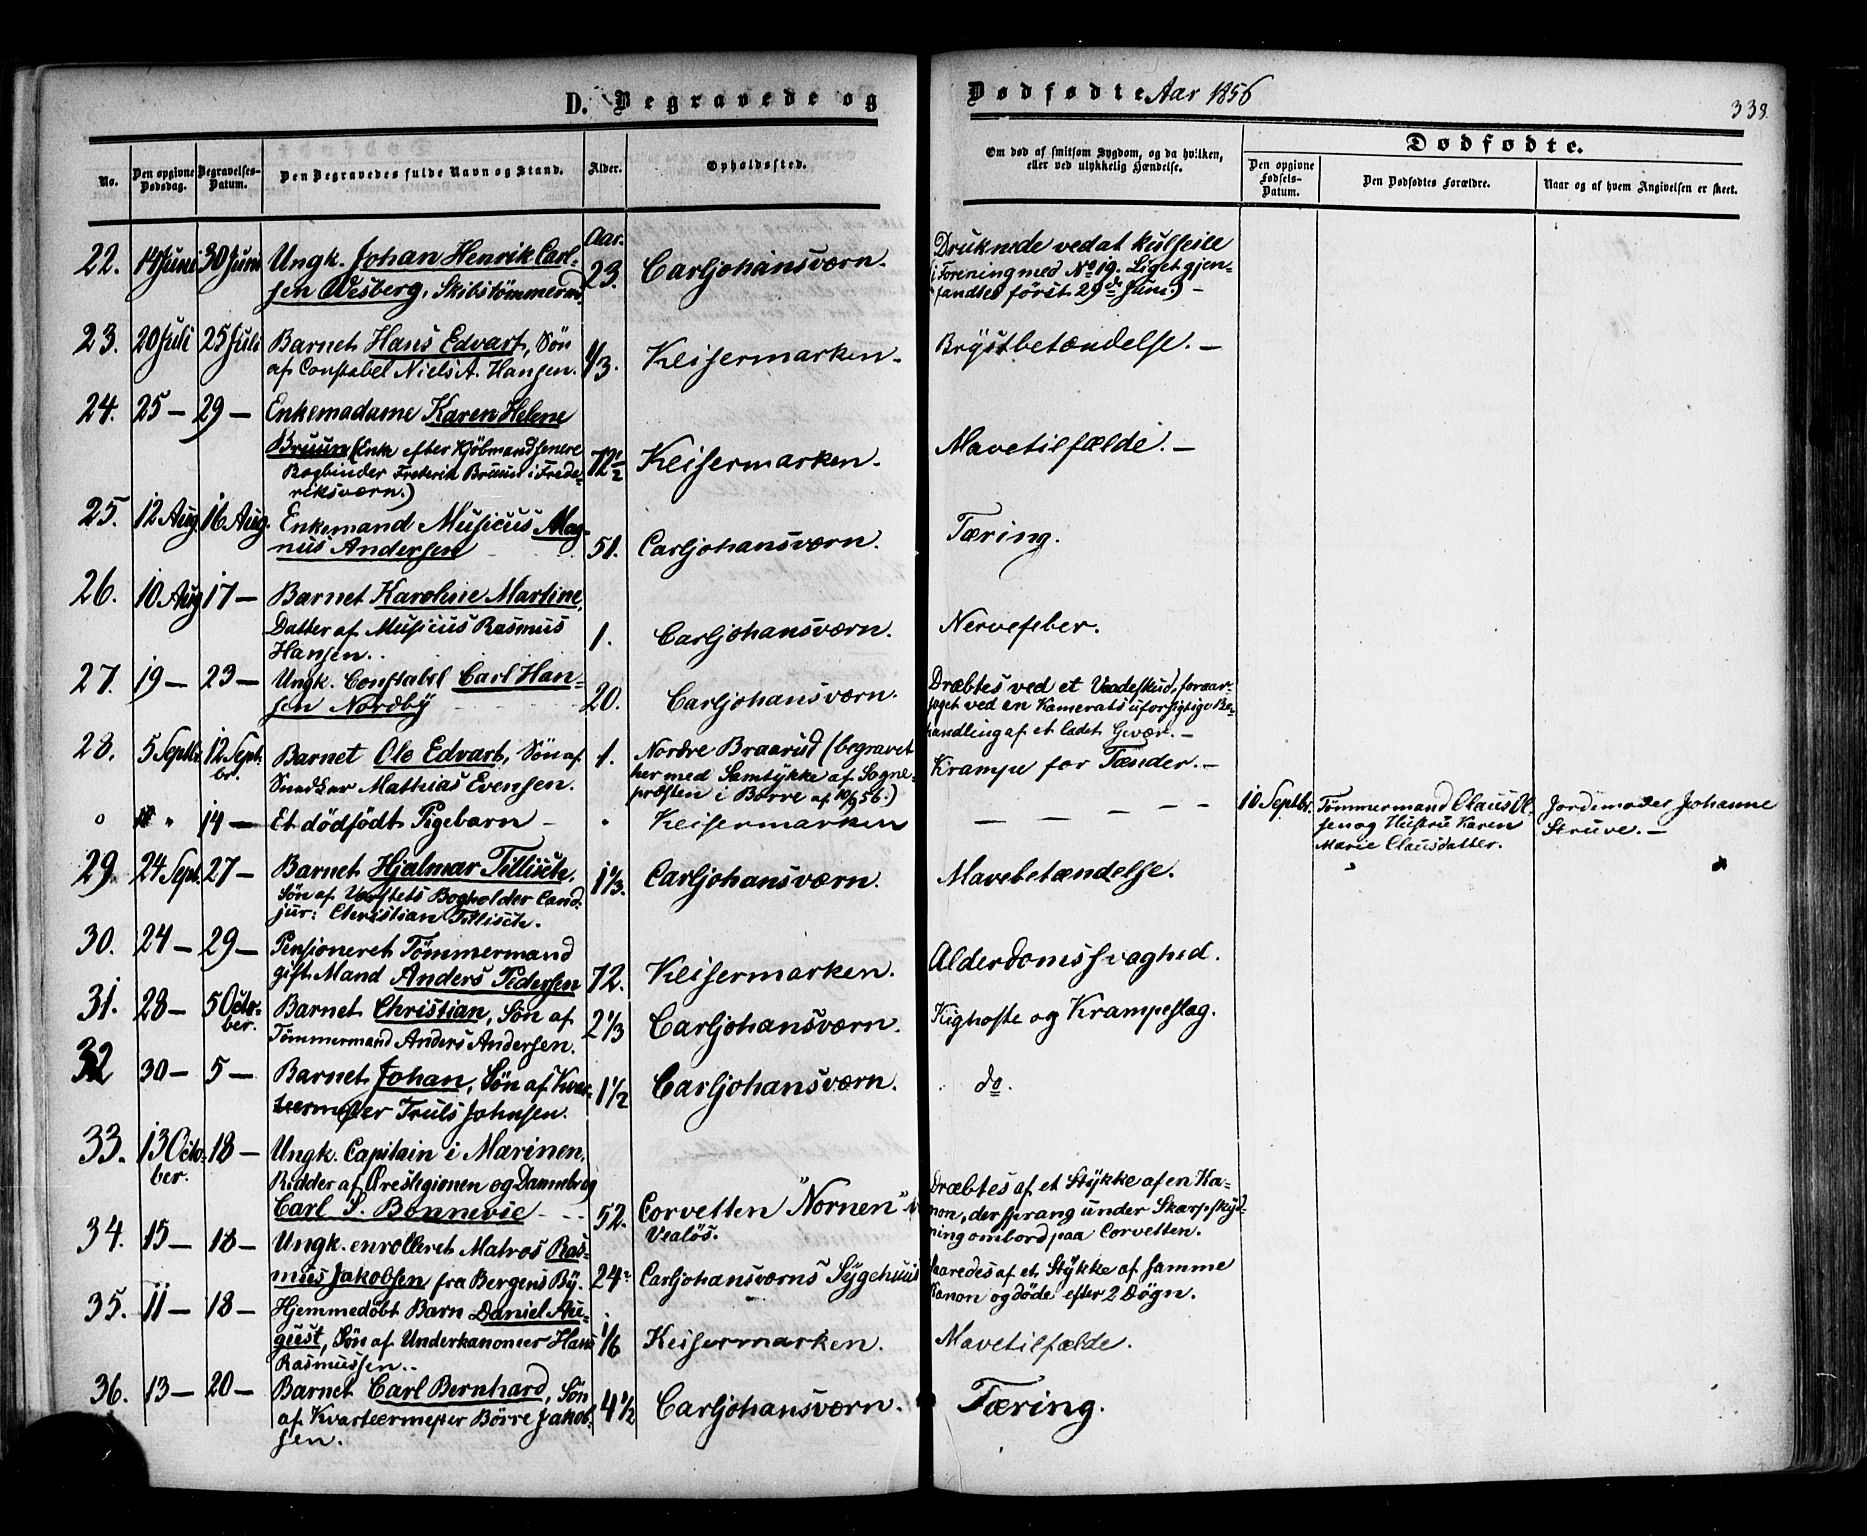 D. Begravede og
Dødfødte Aar 1856
339.
No.
Den opgivne Dødsdag.
Begravelses-Datum.
Den Begravedes fulde Navn og Stand.
Alder.
Opholdssted.
Om død af smitsom Sygdom, og da hvilken,
eller ved ulykkelig Hændelse.
Dødfødte.
Den opgivne Fødsels-Datum.
Den Dødfødtes Forældre.
Naar og af hvem Angivelsen er skeet.
Aar.
22. 14 Juni 30 Juni Ungk. Johan Henrik Carl-
sen Wesberg, Skibstømmermd. 23. Carljohansværn.
Druknede ved at kulseile
(i Forening med No 19. Liget gjen-
fandtes först 29de Juni.) –
23. 20 Juli 25 Juli Barnet Hans Edvart, Sön
af Constabel Niels A. Hansen. 1/3. Keisermarken.
Brÿstbetændelse. –
24. 25 – 29 – Enkemadame Karen Helene
Bruun (Enke efter Kjöbmand senere
Bogbinder Frederik Bruun i Frede-
riksværn.) 72 1/2 Keisermarken.
Mavetilfælde. –
25. 12 Aug. 16 Aug. Enkemand Musicus Mag-
nus Andersen 51. Carljohansværn.
Tæring.
26. 10 Aug 17 – Barnet Karoline Martine,
Datter af Musicus Rasmus
Hansen. 1. Carljohansværn.
Nervefeber.
27. 19 – 23 – Ungk. Constabel Carl Han-
sen Nordbÿ 20. Carljohansværn.
Dræbtes ved et Vaadeskud, foraar-
saget ved en Kamerats uforsigtige Be-
handling af et ladet Gevær. –
28. 5 Septbr. 12 Septbr. Barnet Ole Edvart, Sön af
Snedker Mathias Evensen. 1. Nordre Braarud (begravet
her med Samtÿkke af Sogne-
præsten i Borre af 10/9 56.)
Krampe for Tænder. –
" 14 – Et dödfödt Pigebarn – Keisermarken
– – – – – 10 Septbr. Tömmermand Claus Ol-
sen og Hustru Karen
Marie Clausdatter.
Jordmoder Johanne
Struve. –
29. 24 Sept. 27 – Barnet Hjalmar Tillisch,
Sön af Værftets Bogholder Cand.
jur: Christian Tillisch. 1 1/3. Carljohansværn.
Mavebetændelse.
30. 24 – 29 – Pensioneret Tömmermand
gift Mand Anders Pedersen 72. Keisermarken.
Alderdomssvaghed.
31. 28 – 5 October. Barnet Christian, Sön af
Tömmermand Anders Andersen. 2 1/3 Carljohansværn.
Kighoste og Krampeslag.
32 30 – 5 – Barnet Johan, Sön af Kvar-
teermester Truls Johnsen. 1 1/2 Carljohansværn.
do.
33. 13 October. 18 – Ungk. Capitain i Marinen,
Ridder af Æreslegionen og Dannebrog
Carl S. Bonnevie 52. Corvetten "Nornen" v
Vealös.
Dræbtes af et Stÿkke af en Ka-
non, der sprang under Skarpskÿd-
ning ombord paa Corvetten.
34. 15 – 18 – Ungk. enrolleret Matros Ras-
mus Jakobsen fra Bergens Bÿ. 24. Carljohansværns Sÿgehuus
Saaredes af et Stÿkke af samme
Kanon og döde efter 2 Dögn.
35. 11 – 18 – Hjemmedöbt Barn Daniel Au-
gust, Sön af Underkanoneer Hans
Rasmussen. 1/6 Keisermarken.
Mavetilfælde.
36. 13 – 20 – Barnet Carl Bernhard, Sön
af Kvarteermester Börre Jakob-
sen. 4 1/2 Carljohansværn.
Tæring.